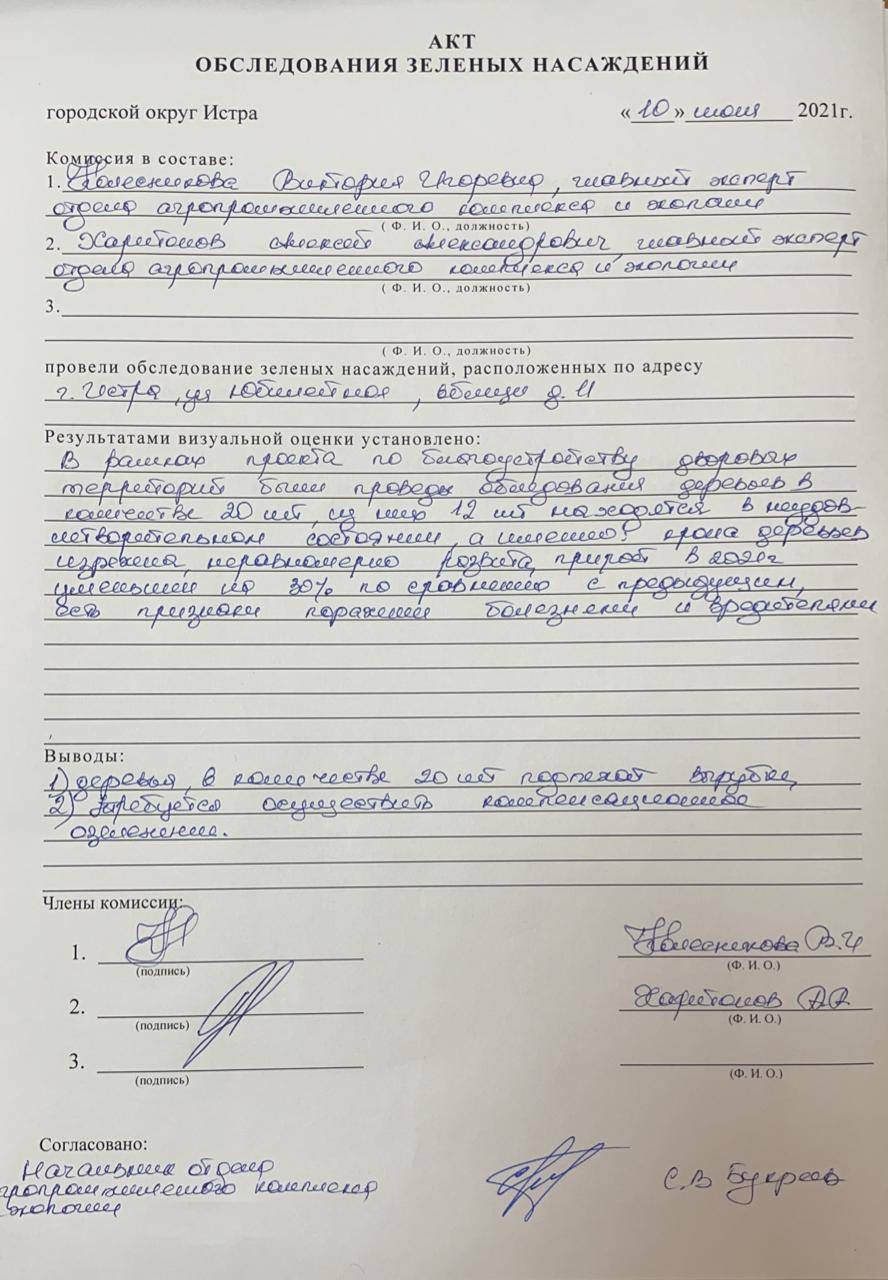 АКТ
ОБСЛЕДОВАНИЯ ЗЕЛЕНЫХ НАСАЖДЕНИЙ
городской округ Истра «10» июня 2021г.
Комиссия в составе:
1. Колесникова Виктория Игоревна, главный эксперт
отдела агропромышленного комплекса и экологии
( Ф. И. О., должность)
2. Харитонов Алексей Александрович, главный эксперт
отдела агропромышленного комплекса и экологии
( Ф. И. О., должность)
3.
( Ф. И. О., должность)
провели обследование зеленых насаждений, расположенных по адресу
г. Истра, ул Юбилейная, вблизи д.
Результатами визуальной оценки установлено:
В рамках проекта по благоустройству дворовых
территорий были проведы обследования деревьев в
количестве 20 шт, из них 12 шт находятся в неудов-
летворительном состоянии, а именно: крона деревьев
изрежена, неравномерно развита, прирост в
уменьшен на 30% по сравнению с предыдущим,
есть признаки поражения болезнями и вредителями
Выводы:
1) деревья, в количестве 20 шт подлежат вырубке,
2) Требуется осуществить компенсационное
озеленение.
Члены комиссии:
1. Колесникова В.И
(подпись) (Ф. И. О.)
2. Харитонов А.А.
(подпись) (Ф. И. О.)
3.
(подпись) (Ф. И. О.)
Согласовано:
Начальник отдела
агропромышленного комплекса
экологии С.В Букреев